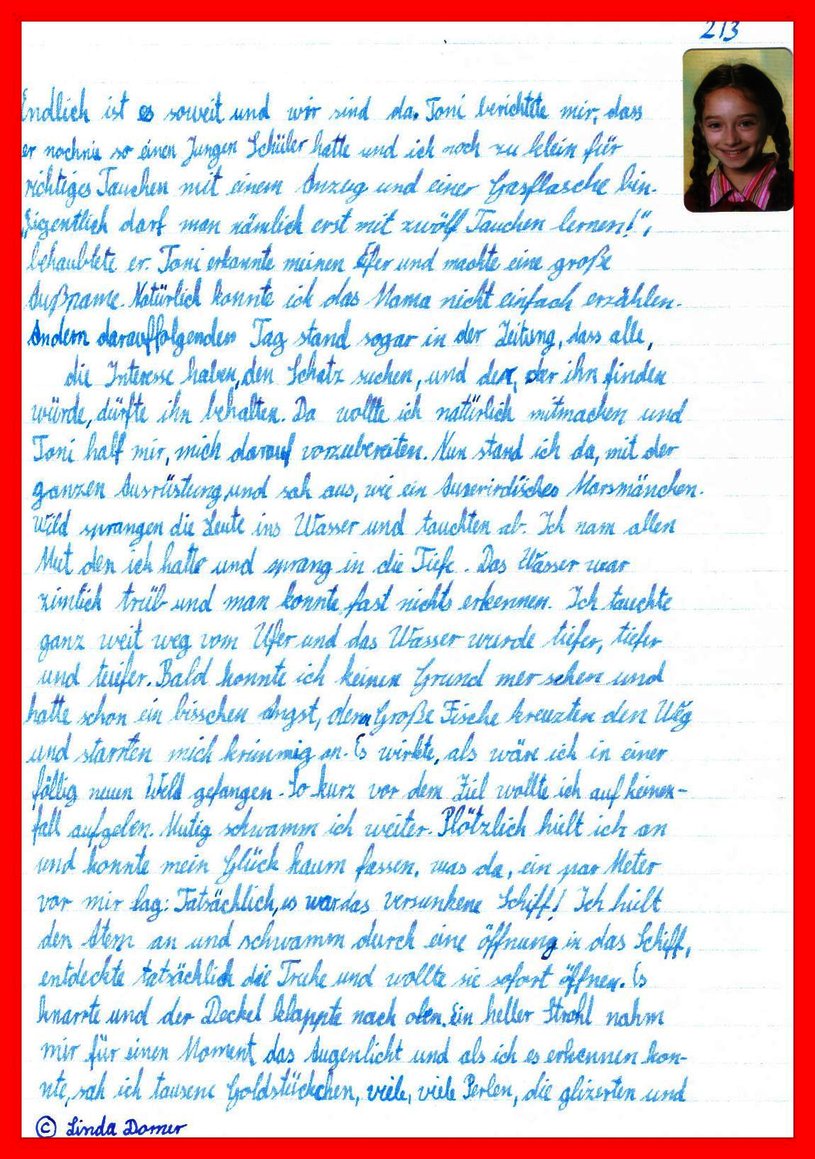 213
Endlich ist es soweit und wir sind da. Toni berichtete mir, dass
er nochnie so einen Jungen Schüler hatte und ich noch zu klein für
richtiges Tauchen mit einem Anzug und einer Gasflasche bin.
„Eigentlich darf man nämlich erst mit zwölf Tauchen lernen!“,
behaubtete er. Toni erkannte meinen Eifer und machte eine große
Außname. Natürlich konnte ich das Mama nicht einfach erzählen.
Andem darauffolgenden Tag stand sogar in der Zeitung, dass alle,
die Interesse haben, den Schatz suchen, und der, der ihn finden
würde, dürfte ihn behalten. Da wollte ich natürlich mitmachen und
Toni half mir, mich darauf vorzubereiten. Nun stand ich da, mit der
ganzen Ausrüstung und sah aus, wie ein Auserirdisches Marsmänchen.
Wild sprangen die Leute ins Wasser und tauchten ab. Ich nam allen
Mut den ich hatte und sprang in die Tiefe. Das Wasser war
zimlich trüb und man konnte fast nichts erkennen. Ich tauchte
ganz weit weg vom Ufer und das Wasser wurde tiefer, tiefer
und tiefer. Bald konnte ich keinen Grund mer sehen und
hatte schon ein bisschen Angst, denn Große Fische kreuzten den Weg
und starrten mich krimmig an. Es wirkte, als wäre ich in einer
föllig neuen Welt gefangen. So kurz vor dem Ziel wollte ich auf keinen-
fall aufgeben. Mutig schwamm ich weiter. Plötzlich hielt ich an
und konnte mein Glück kaum fassen, was da, ein par Meter
vor mir lag: Tatsächlich, es war das versunkene Schiff! Ich hielt
den Atem an und schwamm durch eine öffnung in das Schiff,
entdeckte tatsächlich die Truhe und wollte sie sofort öffnen. Es
knarrte und der Deckel klappte nach oben. Ein heller Strahl nahm
mir für einen Moment das Augenlicht und als ich es erkennen kon-
nte, sah ich tausene Goldstückchen, viele, viele Perlen, die glizerten und
© Linda Domer